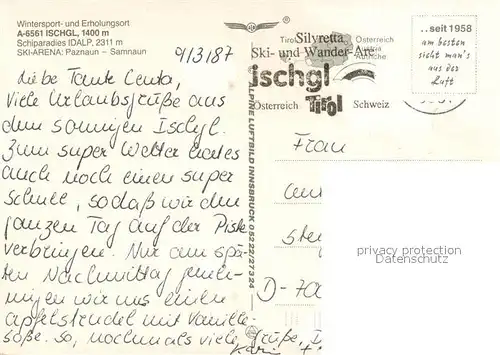 Wintersport- und Erholungsort
A-6561 ISCHGL, 1400 m
Schiparadies IDALP, 2311 m
SKI-ARENA: Paznaun - Samnaun
9/3/87
Liebe Tante Centa,
viele Urlaubsgrüße aus
dem sonnigen Ischgl.
Zum super Wetter hat es
auch noch einen super
Schnee, sodaß wir den
ganzen Tag auf der Piste
verbringen. Nur am spä-
ten Nachmittag geneh-
migen wir uns einen
Apfelstrudel mit Vanille-
soße. So, nochmals viele Grüße,
ALPINE LUFTBILD INNSBRUCK 05222/27324
Silvretta
Ski- und Wander-Are
ischgl
Österreich Tirol Schweiz
Tirol Österreich
..seit 1958
am besten
sieht man's
aus der
Luft
Frau
Cen
Ste
D-70
privacy protection
Datenschutz